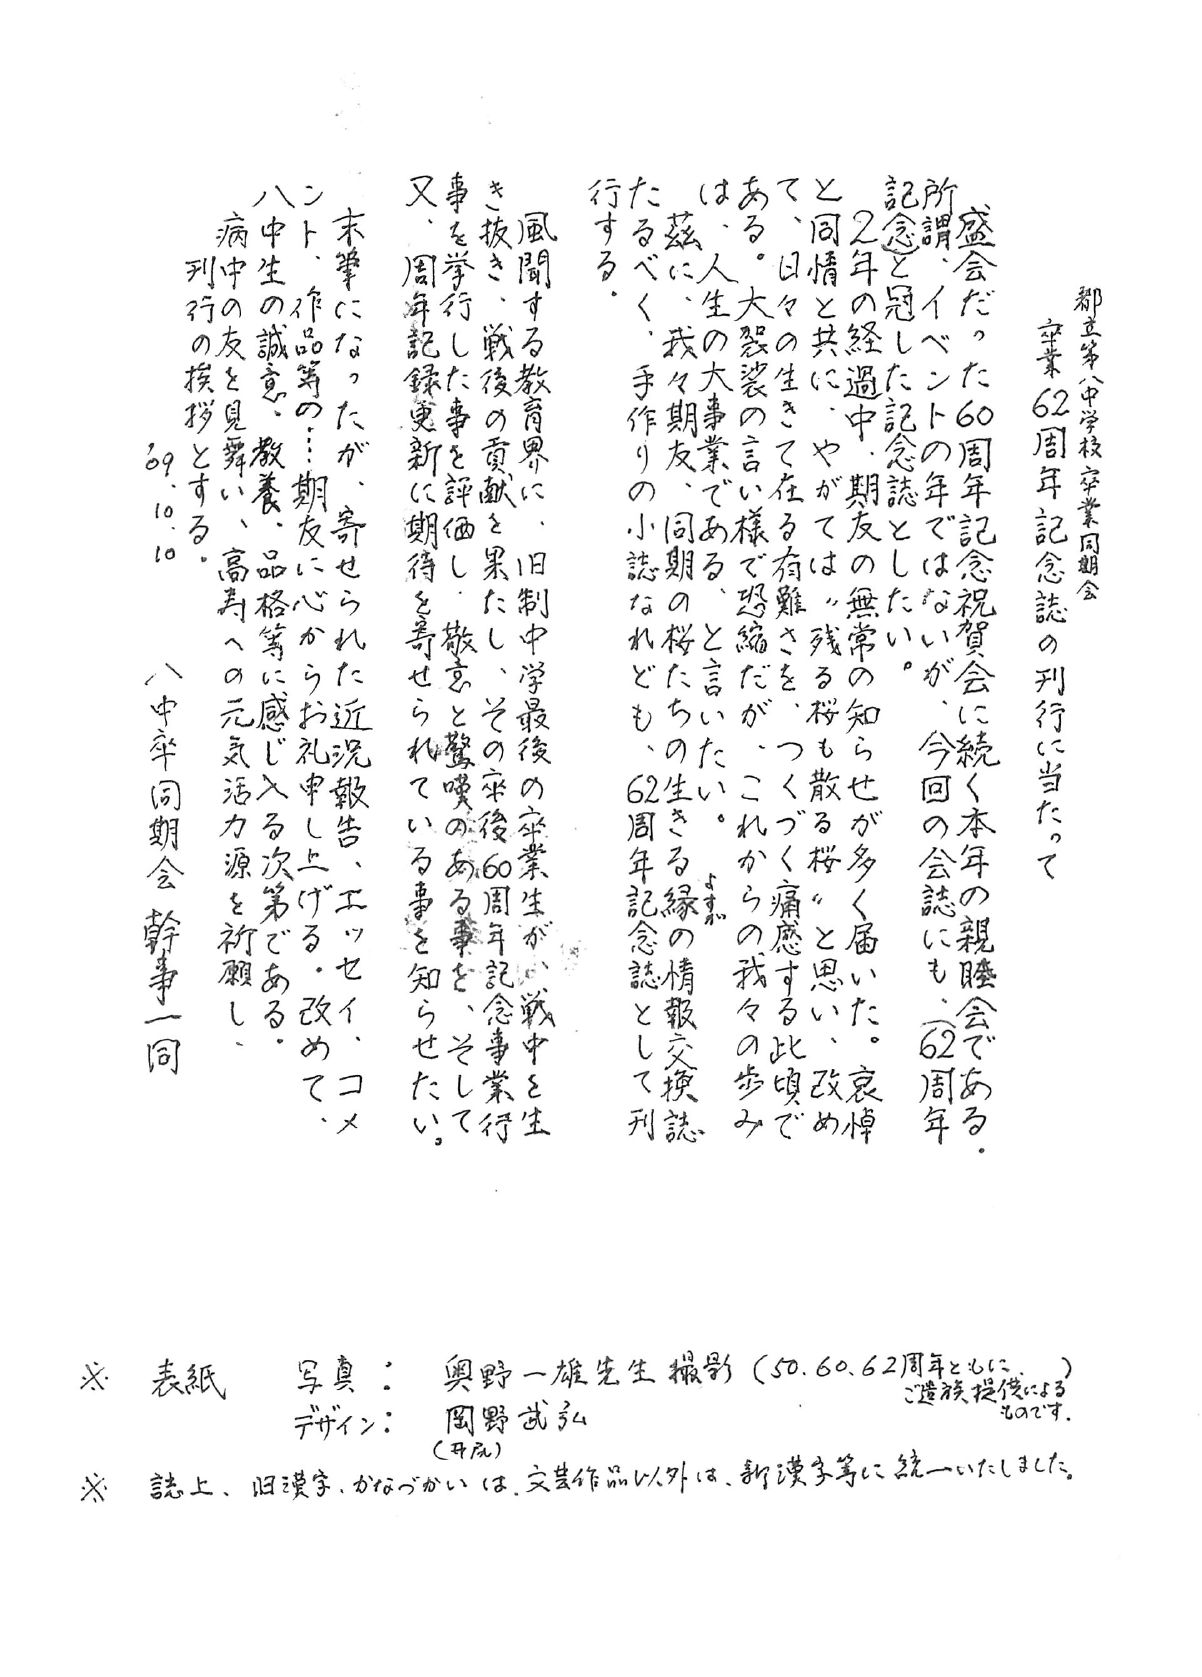 都立第八中学校卒業同期会
卒業62周年記念誌の刊行に当たって
盛会だった60周年記念祝賀会に続く本年の親睦会である.
所謂、イベントの年ではないが、今回の会誌にも、(62周年
記念)と冠した記念誌としたい。
2年の経過中、期友の無常の知らせが多く届いた。哀悼
と同情と共に、やがては〝残る桜も散る桜〟と思い、改め
て、日々の生きて在る有難さを、つくづく痛感する此頃で
ある。大袈裟の言い様で恐縮だが、これからの我々の歩み
は、人生の大事業である、と言いたい。
茲に、我々期友、同期の桜たちの生きる縁の情報交換誌
よすが
たるべく、手作りの小誌なれども、62周年記念誌として刊
行する.
風聞する教育界に、旧制中学最後の卒業生が、戦中を生
き抜き、戦後の貢献を果たし、その卒後60周年記念事業行
事を挙行した事を評価し、敬意と驚嘆のある事を、そして
又、周年記録更新に期待を寄せられている事を知らせたい。
末筆になったが、寄せられた近況報告、エッセイ、コメ
ント、作品等の…期友に心からお礼申し上げる.改めて、
八中生の誠意、教養、品格等に感じ入る次第である.
病中の友を見舞い、高寿への元気活力源を祈願し、
刊行の挨拶とする.
'09.10.10 八中卒同期会 幹事一同
※ 表紙 写真: 奥野一雄先生撮影(50.60.62周年ともに
ご遺族提供による
ものです.)
デザイン: 岡野武弘
※ 誌上、旧漢字、かなづかいは、文芸作品以外は、新漢字等に統一いたしました。